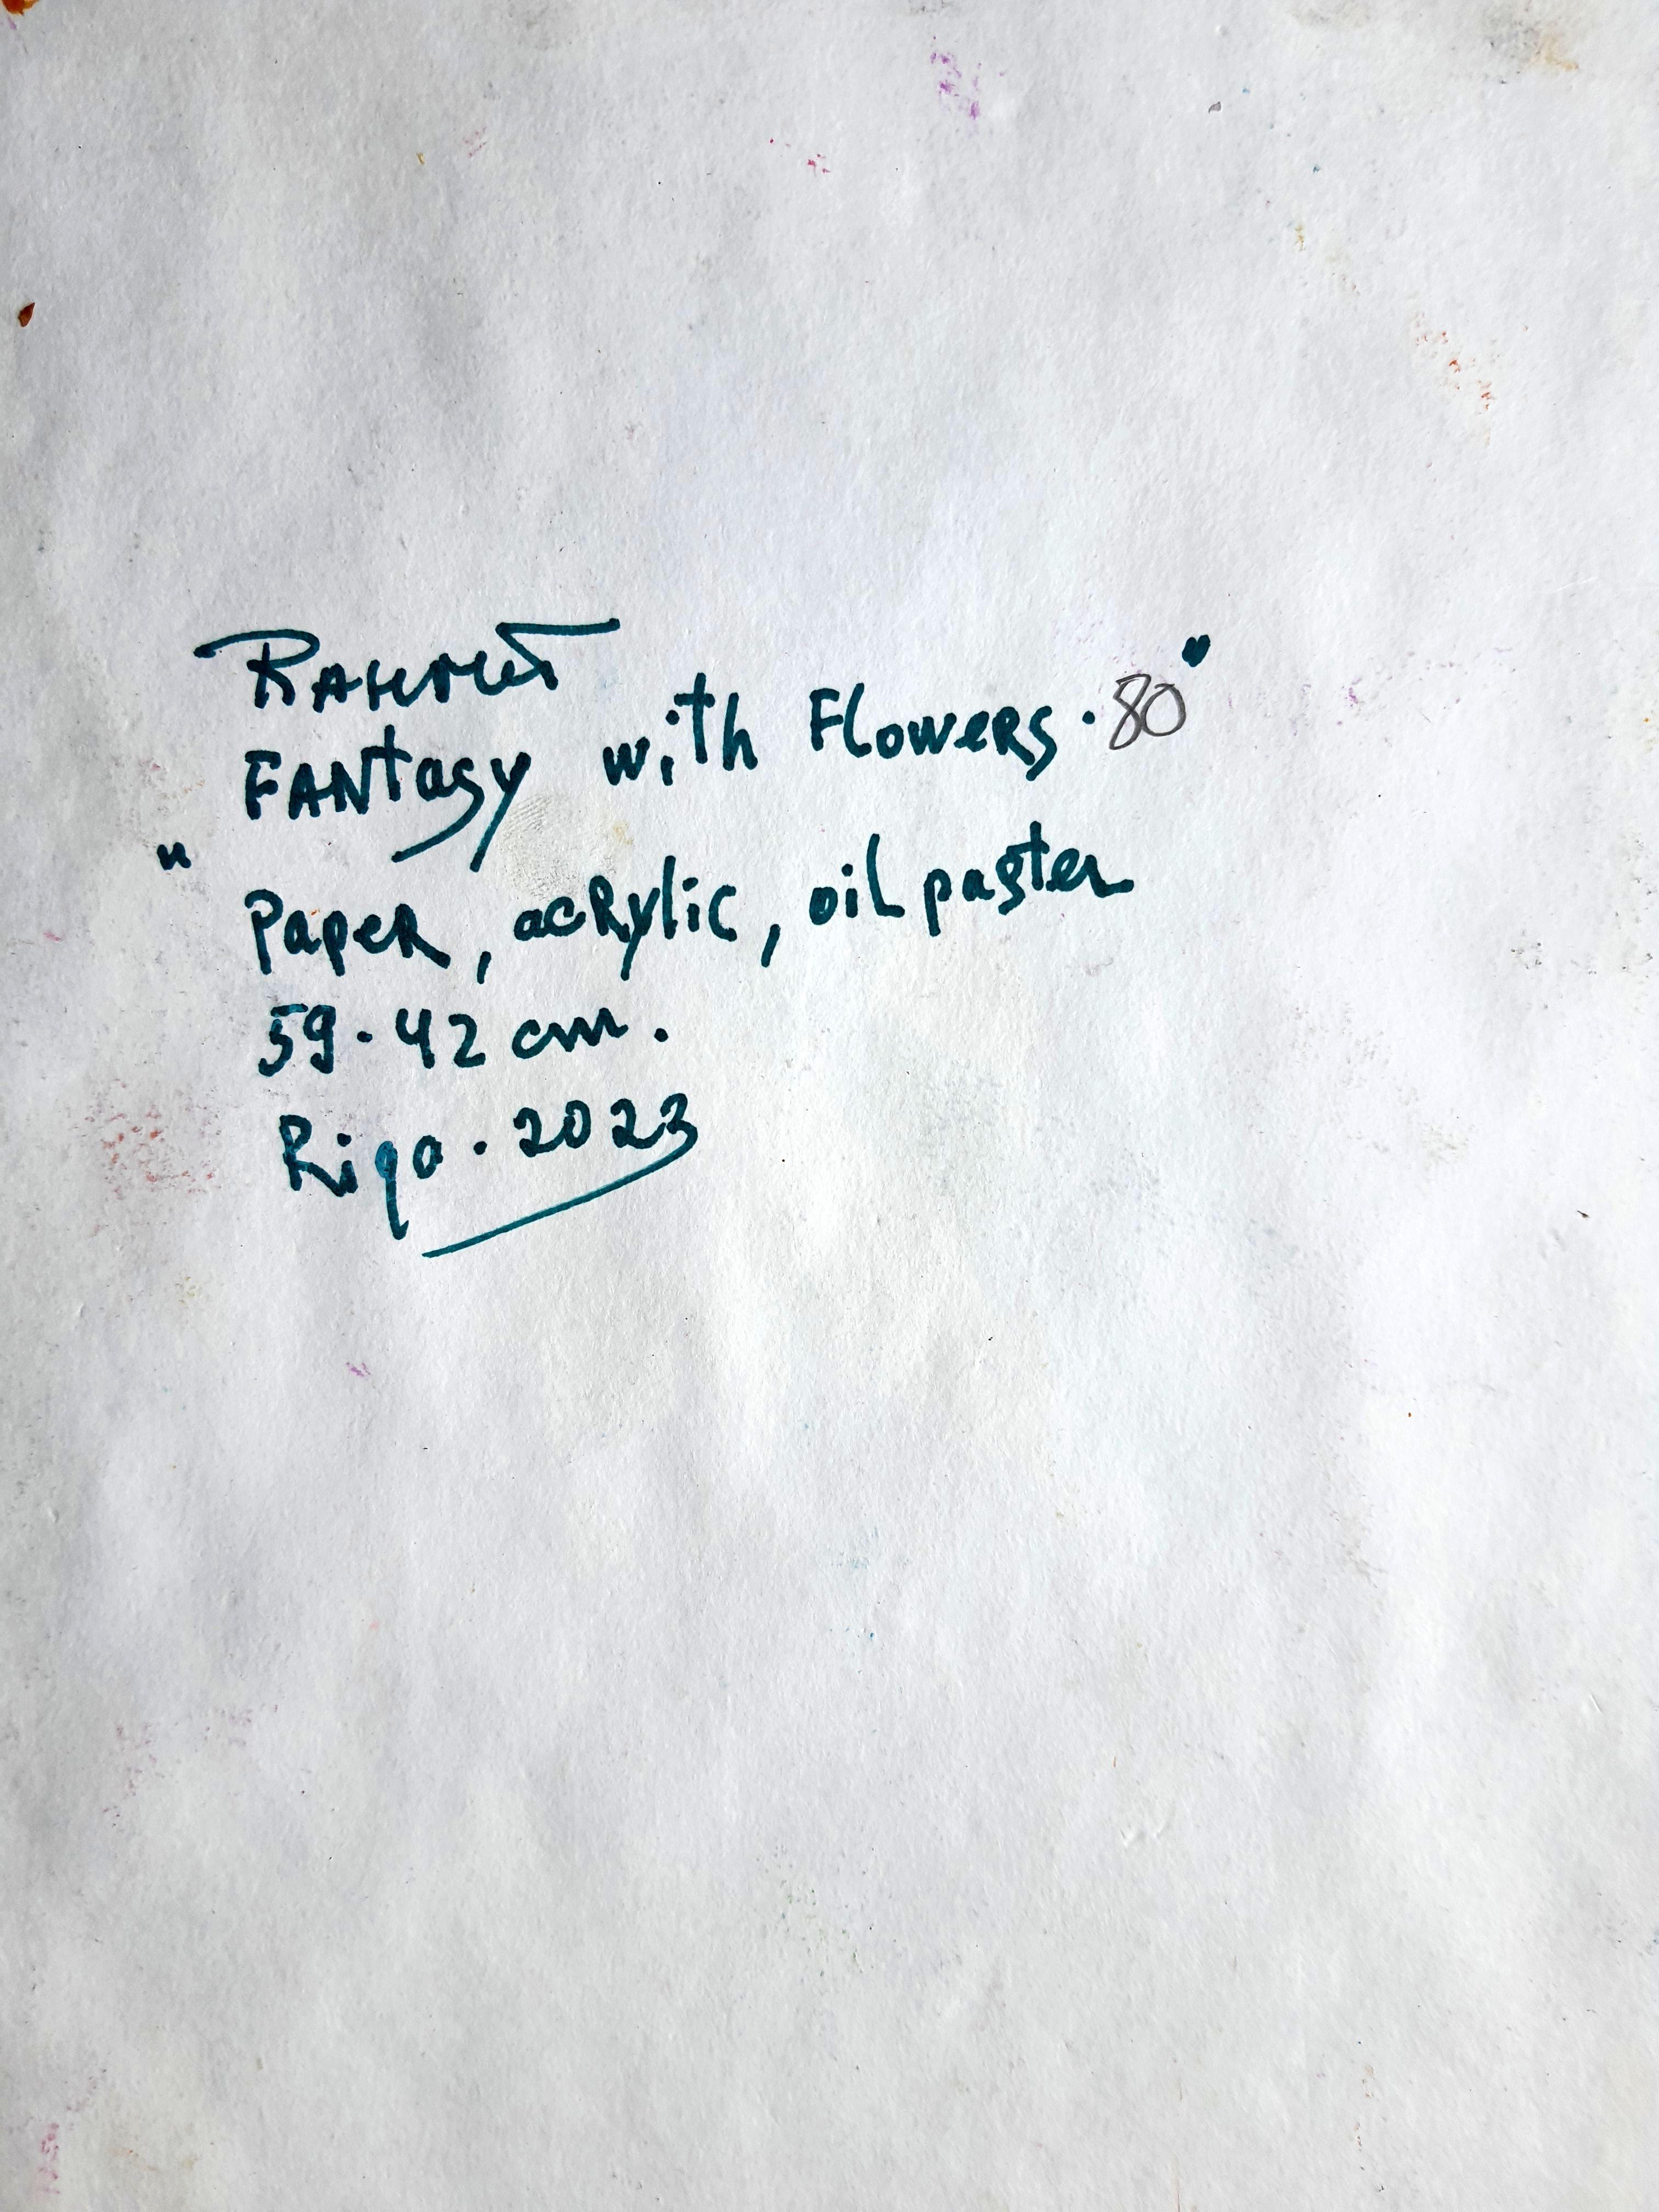 FANtasy with Flowers.80"
"
Paper, acrylic, oil paster
59.42 cm.
Riga.2023